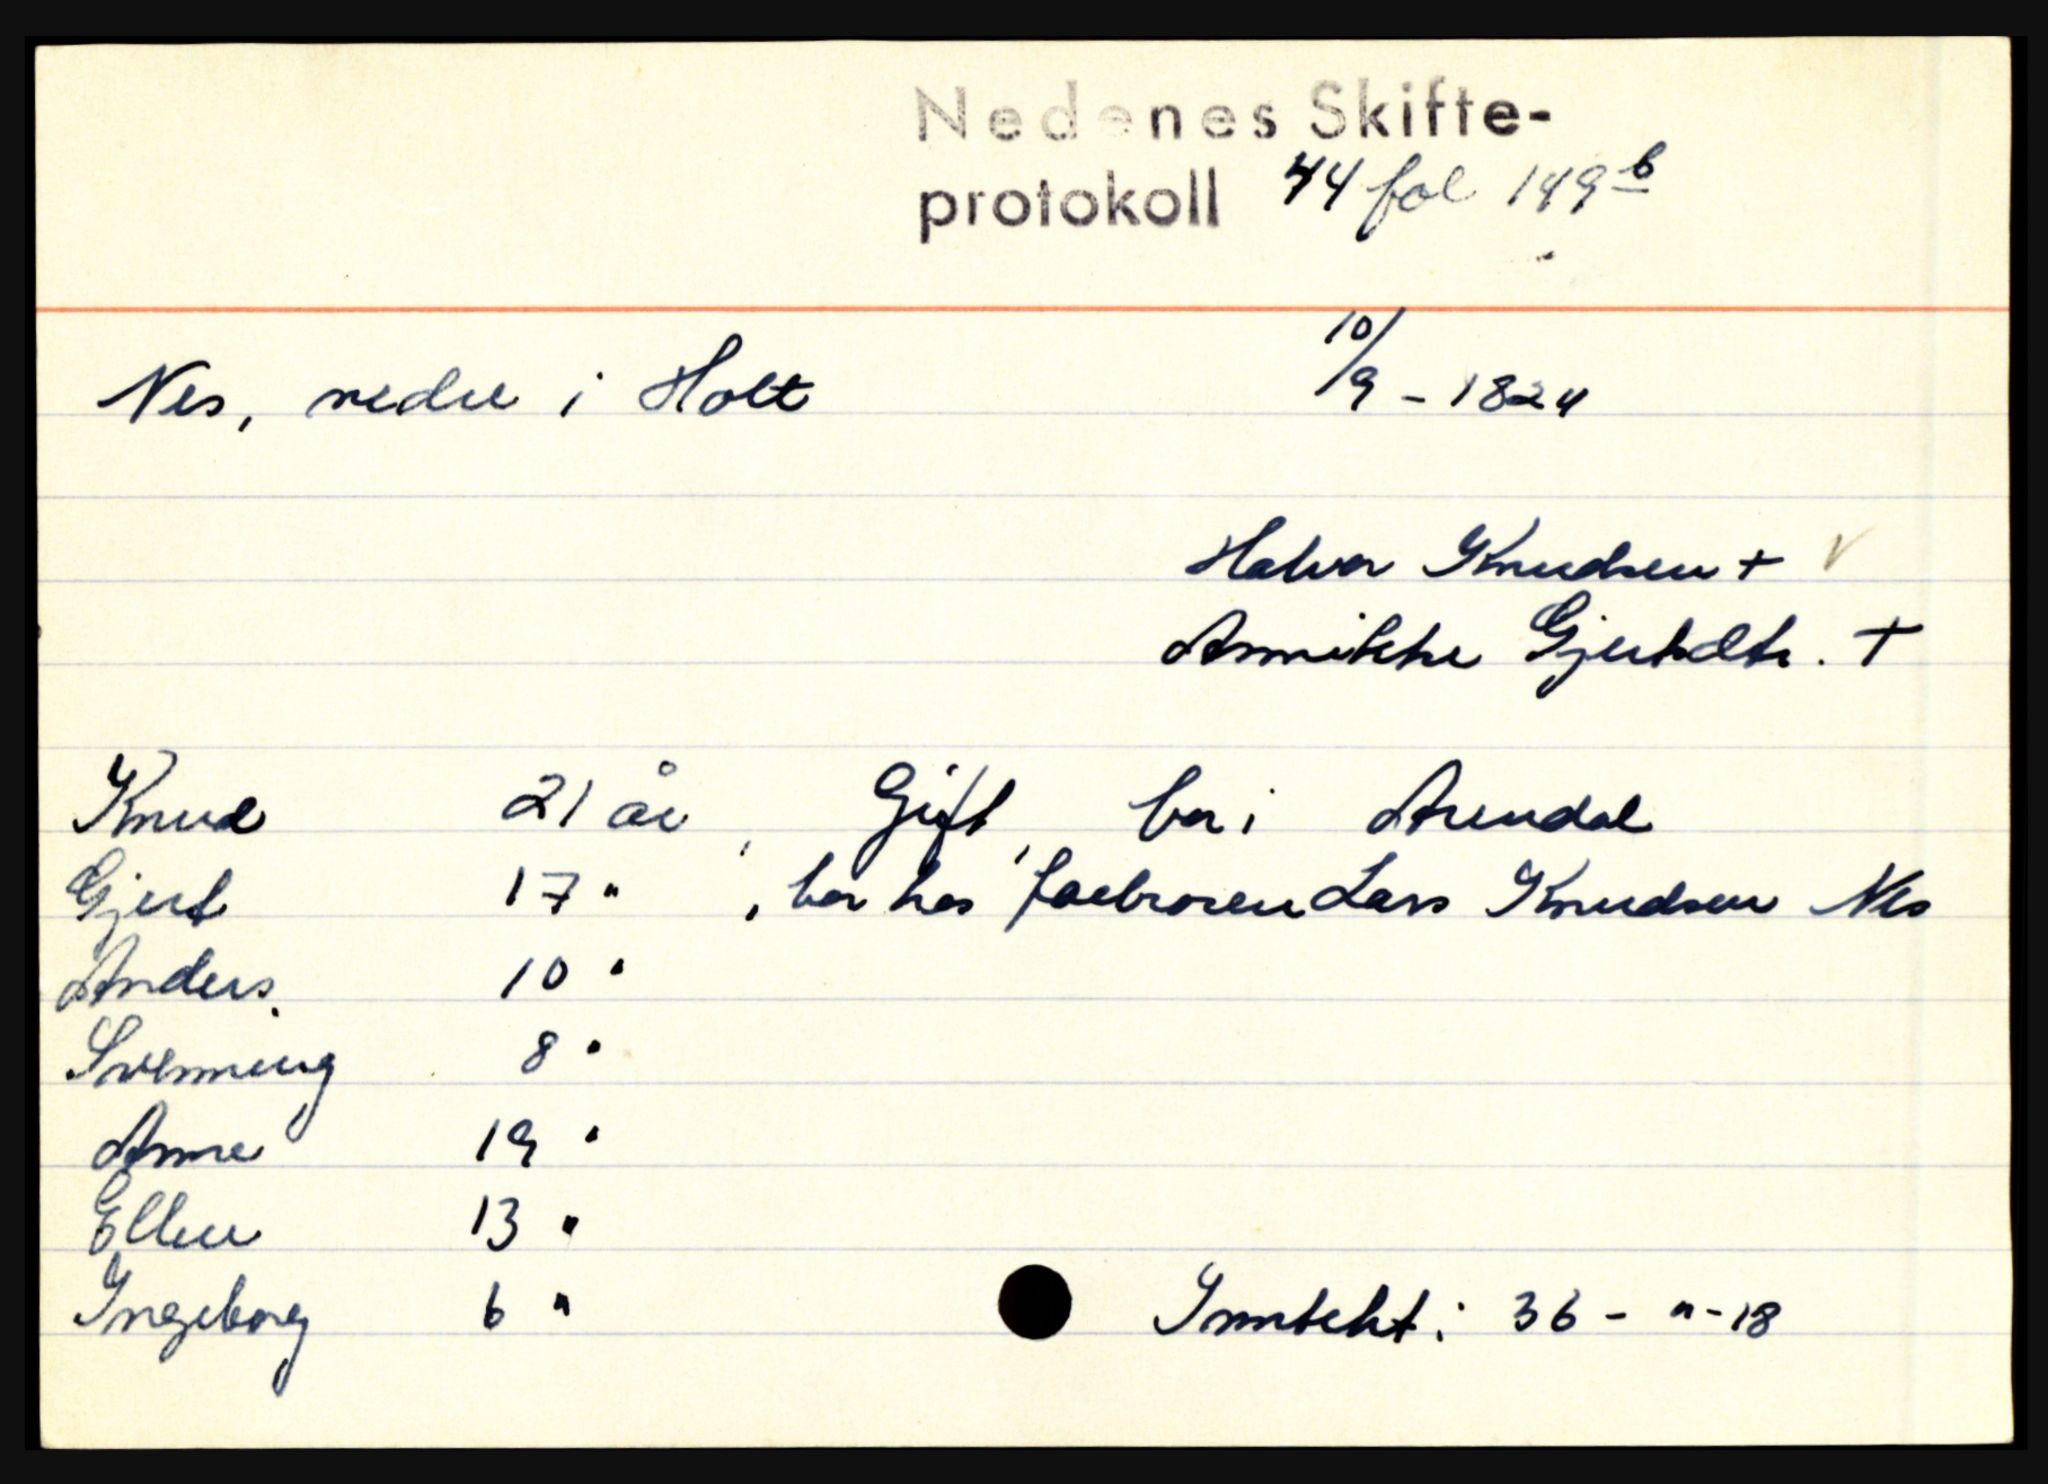 Nedenes Skifte-
protokoll 44 fol 149 b
Nes, nedre i Holt 10/9 - 1824
Halvor Knudsen +
Annikke Gjertsdtr. +
Knud 21 år, Gift, bor i Arendal
Gjert 17 " , bor hos farbroren Lars Knudsen Nes
Anders. 10 "
Svenning 8 "
Anne 19 "
Ellen 13 "
Ingeborg 6 " Inntekt: 36 - " - 18